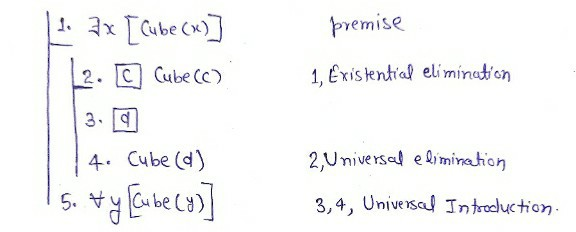 1. ∃x [Cube(x)] premise
2. [c] Cube(c) 1, Existential elimination
3. [d]
4. Cube(d) 2, Universal elimination
5. ∀y [Cube(y)] 3,4, Universal Introduction.